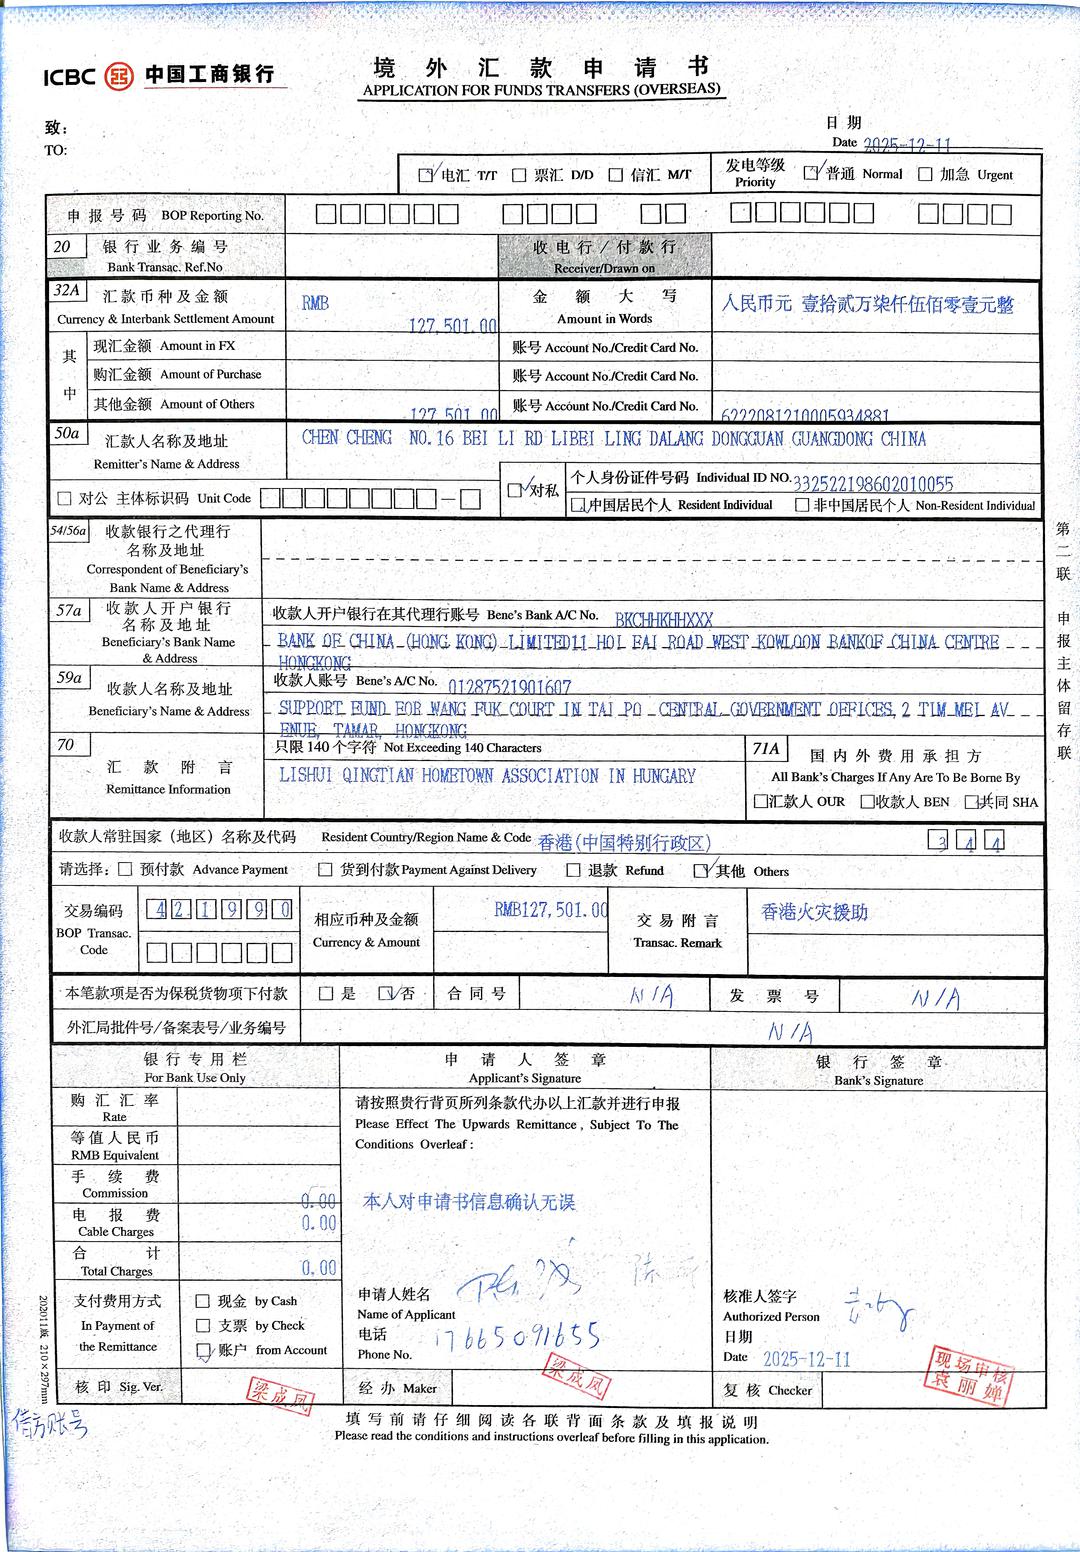 ICBC 中国工商银行
境外汇款申请书
APPLICATION FOR FUNDS TRANSFERS (OVERSEAS)
致:
TO:
日期
Date 2025-12-11
电汇 T/T 票汇 D/D 信汇 M/T
发电等级 Priority 普通 Normal 加急 Urgent
申报号码 BOP Reporting No.
20 银行业务编号 Bank Transac. Ref.No
收电行/付款行 Receiver/Drawn on
32A 汇款币种及金额 Currency & Interbank Settlement Amount
RMB 127,501.00
金额大写 Amount in Words
人民币元 壹拾贰万柒仟伍佰零壹元整
其中
现汇金额 Amount in FX
账号 Account No./Credit Card No.
购汇金额 Amount of Purchase
账号 Account No./Credit Card No.
其他金额 Amount of Others 127,501.00
账号 Account No./Credit Card No. 6222081210005934881
50a 汇款人名称及地址 Remitter's Name & Address
CHEN CHENG NO.16 BEI LI RD LIBEI LING DALANG DONGGUAN GUANGDONG CHINA
对公 主体标识码 Unit Code
对私
个人身份证件号码 Individual ID NO. 332522198602010055
中国居民个人 Resident Individual 非中国居民个人 Non-Resident Individual
54/56a 收款银行之代理行名称及地址
Correspondent of Beneficiary's Bank Name & Address
57a 收款人开户银行名称及地址
Beneficiary's Bank Name & Address
收款人开户银行在其代理行账号 Bene's Bank A/C No. BKCHHKHHXXX
BANK OF CHINA (HONG KONG) LIMITED11 HOI FAI ROAD WEST KOWLOON BANKOF CHINA CENTRE
HONGKONG
59a 收款人名称及地址 Beneficiary's Name & Address
收款人账号 Bene's A/C No. 01287521901607
SUPPORT FUND FOR WANG FUK COURT IN TAI PO CENTRAL GOVERNMENT OFFICES, 2 TIM MEI AV
ENUE, TAMAR, HONGKONG
70 汇款附言 Remittance Information
只限140个字符 Not Exceeding 140 Characters
LISHUI QINGTIAN HOMETOWN ASSOCIATION IN HUNGARY
71A 国内外费用承担方
All Bank's Charges If Any Are To Be Borne By
汇款人 OUR 收款人 BEN 共同 SHA
收款人常驻国家(地区)名称及代码 Resident Country/Region Name & Code 香港(中国特别行政区) 3 4 4
请选择: 预付款 Advance Payment 货到付款 Payment Against Delivery 退款 Refund 其他 Others
交易编码 BOP Transac. Code
4 2 1 9 9 0
相应币种及金额 Currency & Amount
RMB127,501.00
交易附言 Transac. Remark
香港火灾援助
本笔款项是否为保税货物项下付款 是 否 合同号 N/A 发票号 N/A
外汇局批件号/备案表号/业务编号 N/A
银行专用栏 For Bank Use Only
申请人签章 Applicant's Signature
银行签章 Bank's Signature
购汇汇率 Rate
等值人民币 RMB Equivalent
手续费 Commission 0.00
电报费 Cable Charges 0.00
合计 Total Charges 0.00
支付费用方式 In Payment of the Remittance
现金 by Cash
支票 by Check
账户 from Account
请按照贵行背页所列条款代办以上汇款并进行申报
Please Effect The Upwards Remittance, Subject To The
Conditions Overleaf:
本人对申请书信息确认无误
申请人姓名 Name of Applicant
电话 Phone No. 17665091655
核准人签字 Authorized Person
日期 Date 2025-12-11
核印 Sig. Ver. 梁成凤
经办 Maker 梁成凤
复核 Checker
现场审核 袁丽婵
填写前请仔细阅读各联背面条款及填报说明
Please read the conditions and instructions overleaf before filling in this application.
第二联 申报主体留存联
202011版 210×297mm
借方账号